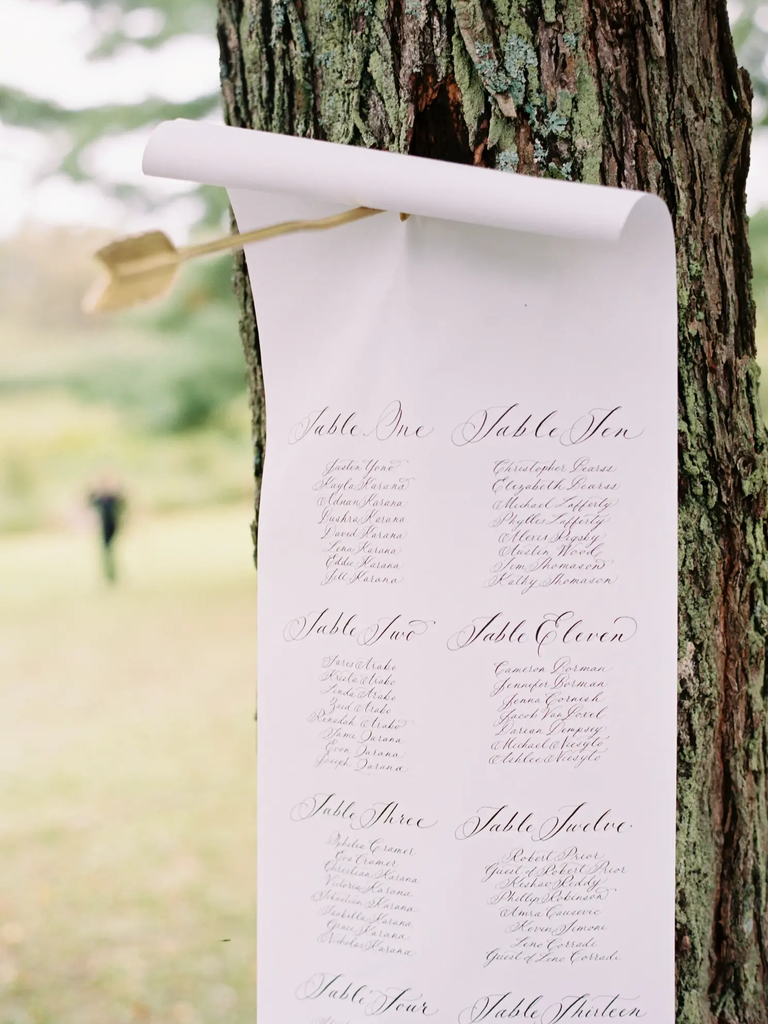 Table One
Justin Yono
Kayla Karana
Adnan Karana
Bushra Karana
David Karana
Lena Karana
Eddie Karana
Jill Karana
Table Two
Fares Arabo
Krista Arabo
Linda Arabo
Zaid Arabo
Arabo
Evon
Joseph
Table Three
Ophelia Cramer
Eva Cramer
Christian Karana
Victoria Karana
Sebastian Karana
Isabella Karana
Grace Karana
Nicholas Karana
Table Four
Table Ten
Christopher Dearss
Elizabeth Dearss
Michael Lafferty
Phyllis Lafferty
Alexis Pigsby
Austin Wood
Tim Thomason
Kathy Thomason
Table Eleven
Cameron Dorman
Jennifer Dorman
Jenna Cornish
Jacob Van Loxel
Darian Dempsey
Michael Niesyto
Ashlee Niesyto
Table Twelve
Robert Prior
Guest of Robert Prior
Keshav Reddy
Phillip Robinson
Amra Causevic
Kevin Simone
Leno Corradi
Guest of Leno Corradi
Table Thirteen